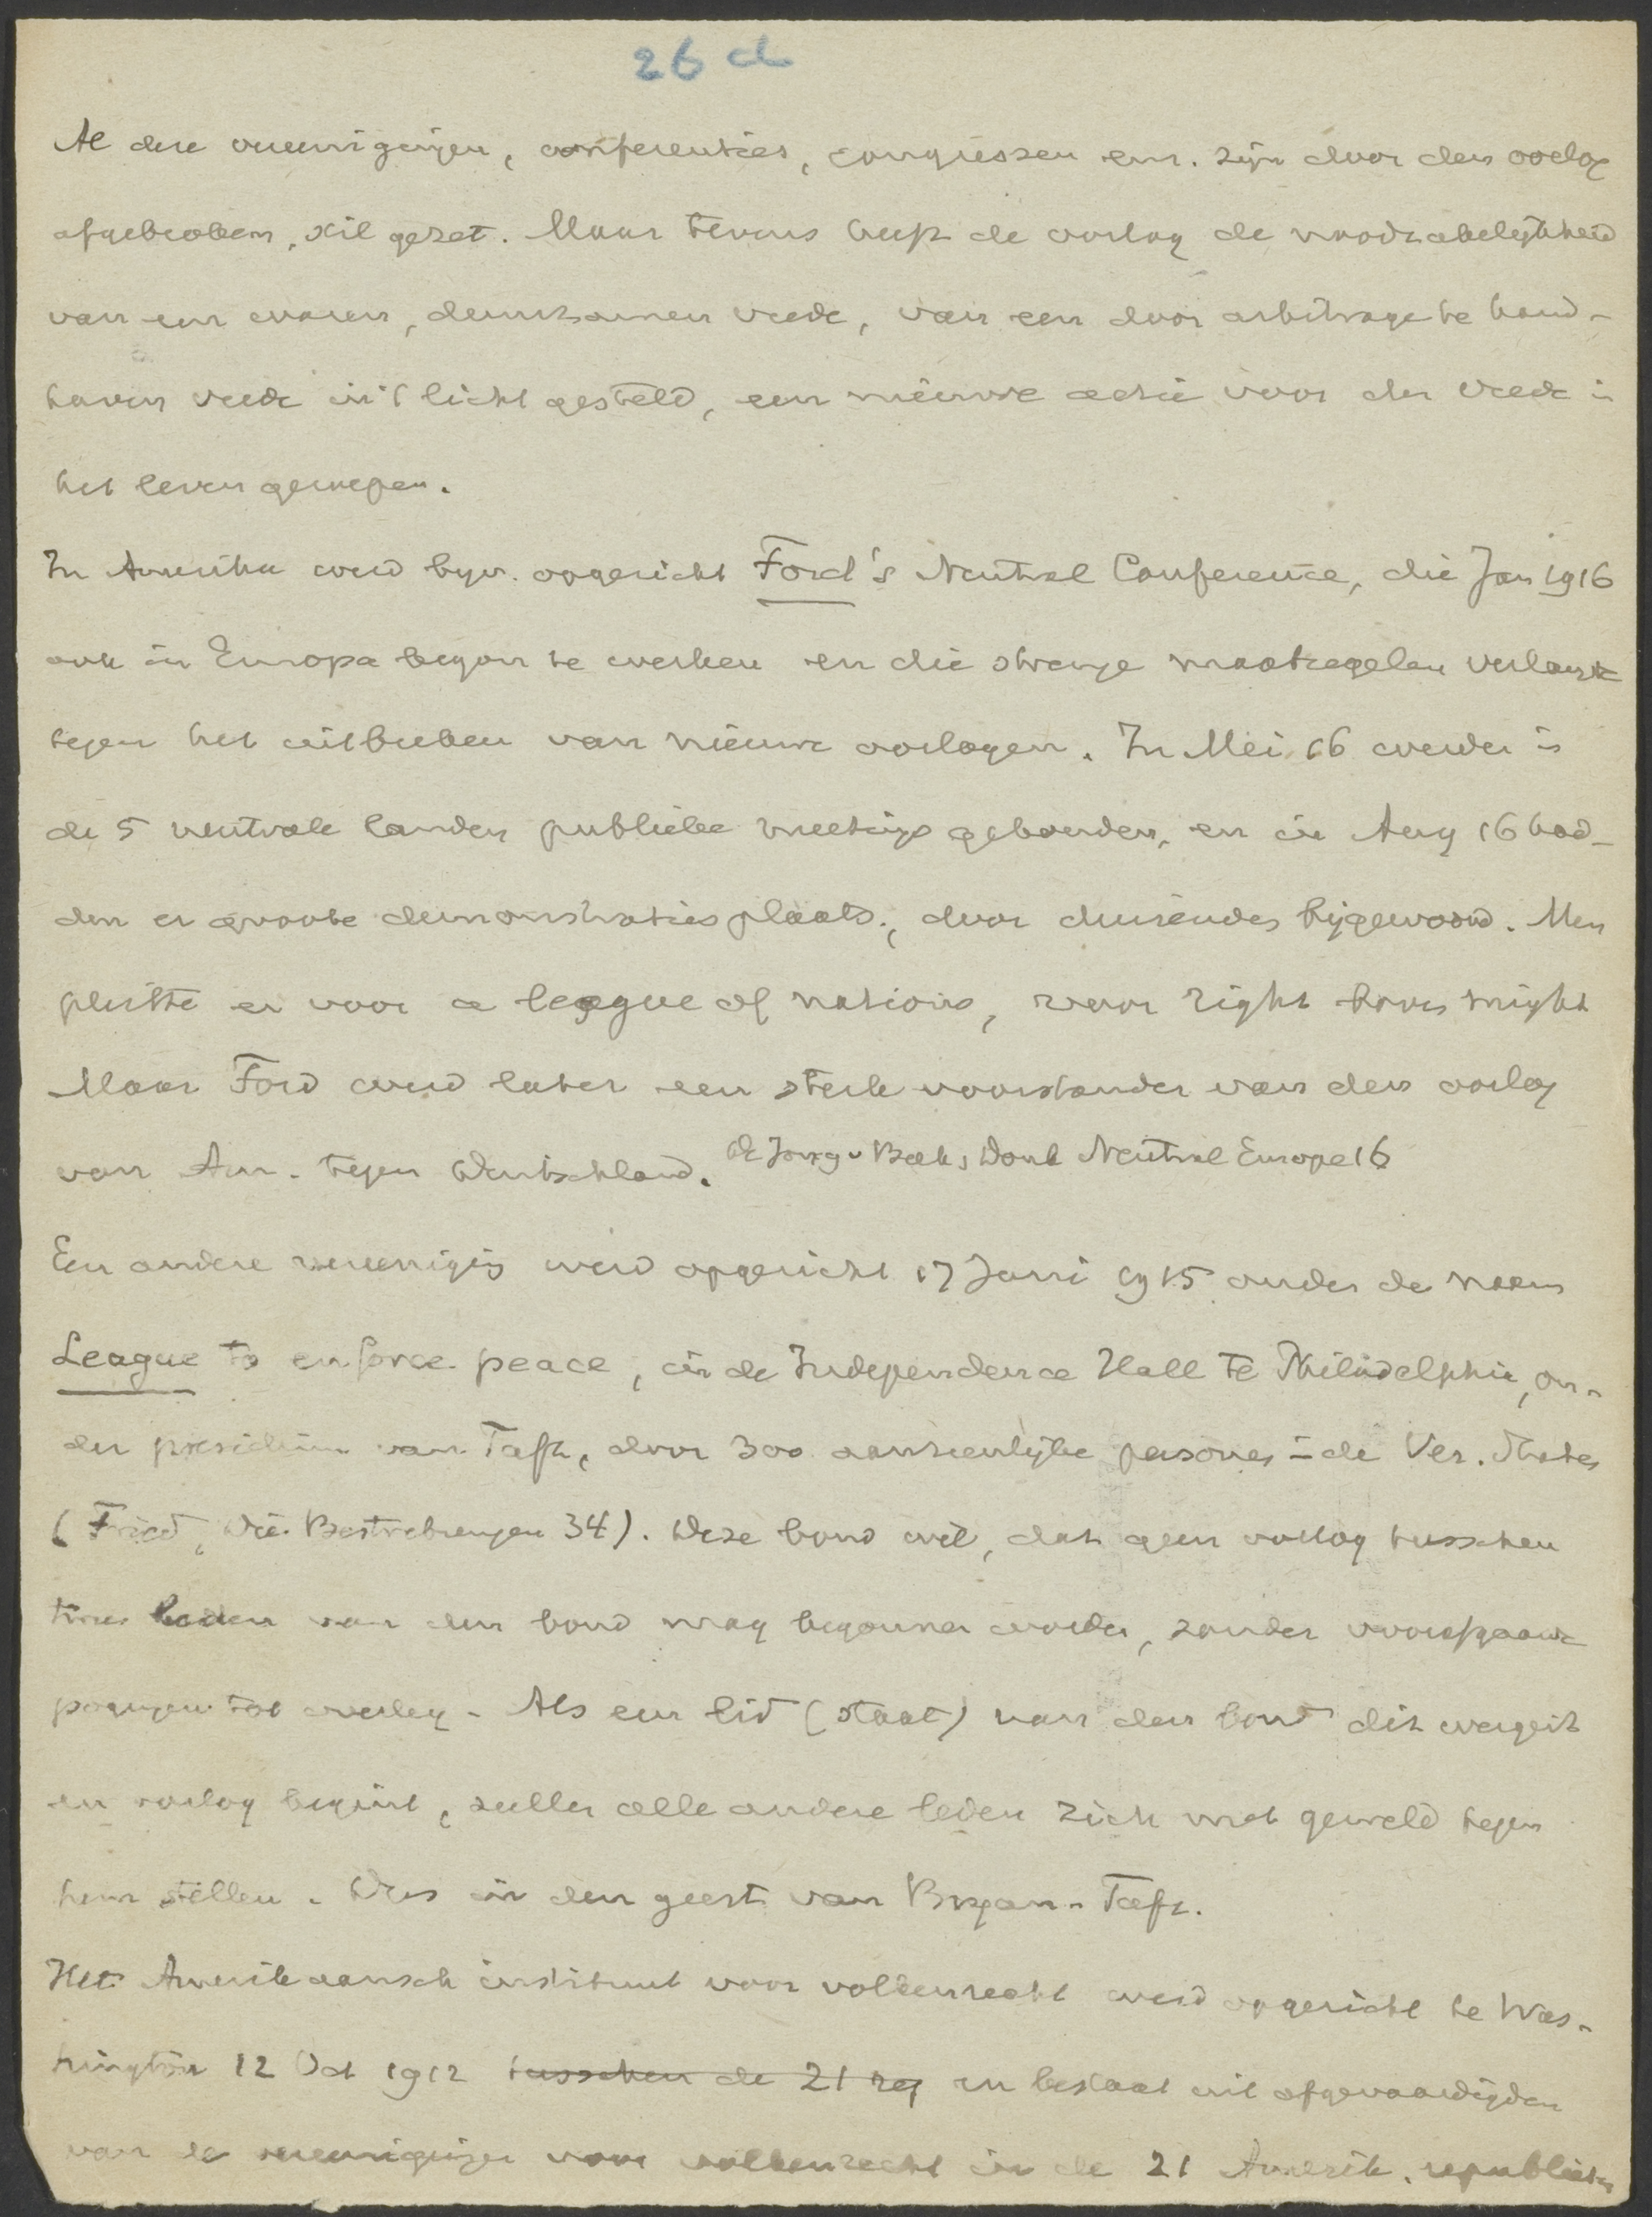 26 d
Al deze vereenigingen, conferenties, congressen enz. zijn door den oorlog
afgebroken, stil gezet. Maar tevens heeft de oorlog de noodzakelijkheid
van een waren, duurzamen vrede, van een door arbitrage te hand-
haven vrede in 't licht gesteld, een nieuwe actie voor den vrede in
het leven geroepen.
In Amerika werd bijv. opgericht Ford's Neutral Conference, die Jan 1916
ook in Europa begon te werken en die strenge maatregelen verlangt
tegen het uitbreken van nieuwe oorlogen. In Mei 16 werden in
de 5 neutrale landen publieke meetings gehouden, en in Aug 16 had-
den er groote demonstraties plaats, door duizenden bijgewoond. Men
pleitte er voor a league of nations, waar right boven might
Maar Ford werd later een sterk voorstander van den oorlog
van Am. tegen Deutschland. De Jong v Beek, Donk Neutral Europe 16
Een andere vereeniging werd opgericht 17 Juni 1915 onder de naam
League to enforce peace, in de Independence Hall te Philadelphia, on-
der presidium van Taft, door 300 aanzienlijke personen in de Ver. Staten
(Fried, Die Bestrebungen 34). Deze bond wil, dat geen oorlog tusschen
twee leden van den bond mag begonnen worden, zonder voorafgaande
pogingen tot overleg. Als een lid (staat) van den bond dit weigert
en oorlog begint, zullen alle andere leden zich met geweld tegen
hem stellen. Dus in den geest van Bryan-Taft.
Het Amerikaansch instituut voor volkenrecht werd opgericht te Was-
hington 12 Oct 1912 tusschen de 21 rep en bestaat uit afgevaardigden
van de vereenigingen voor volkenrecht in de 21 Amerik. republieken